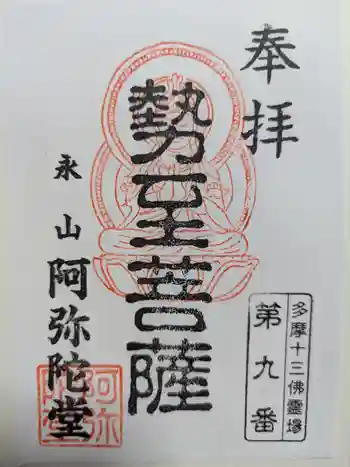 奉拝
多摩十三佛霊場
第九番
勢至菩薩
永山
阿弥陀堂